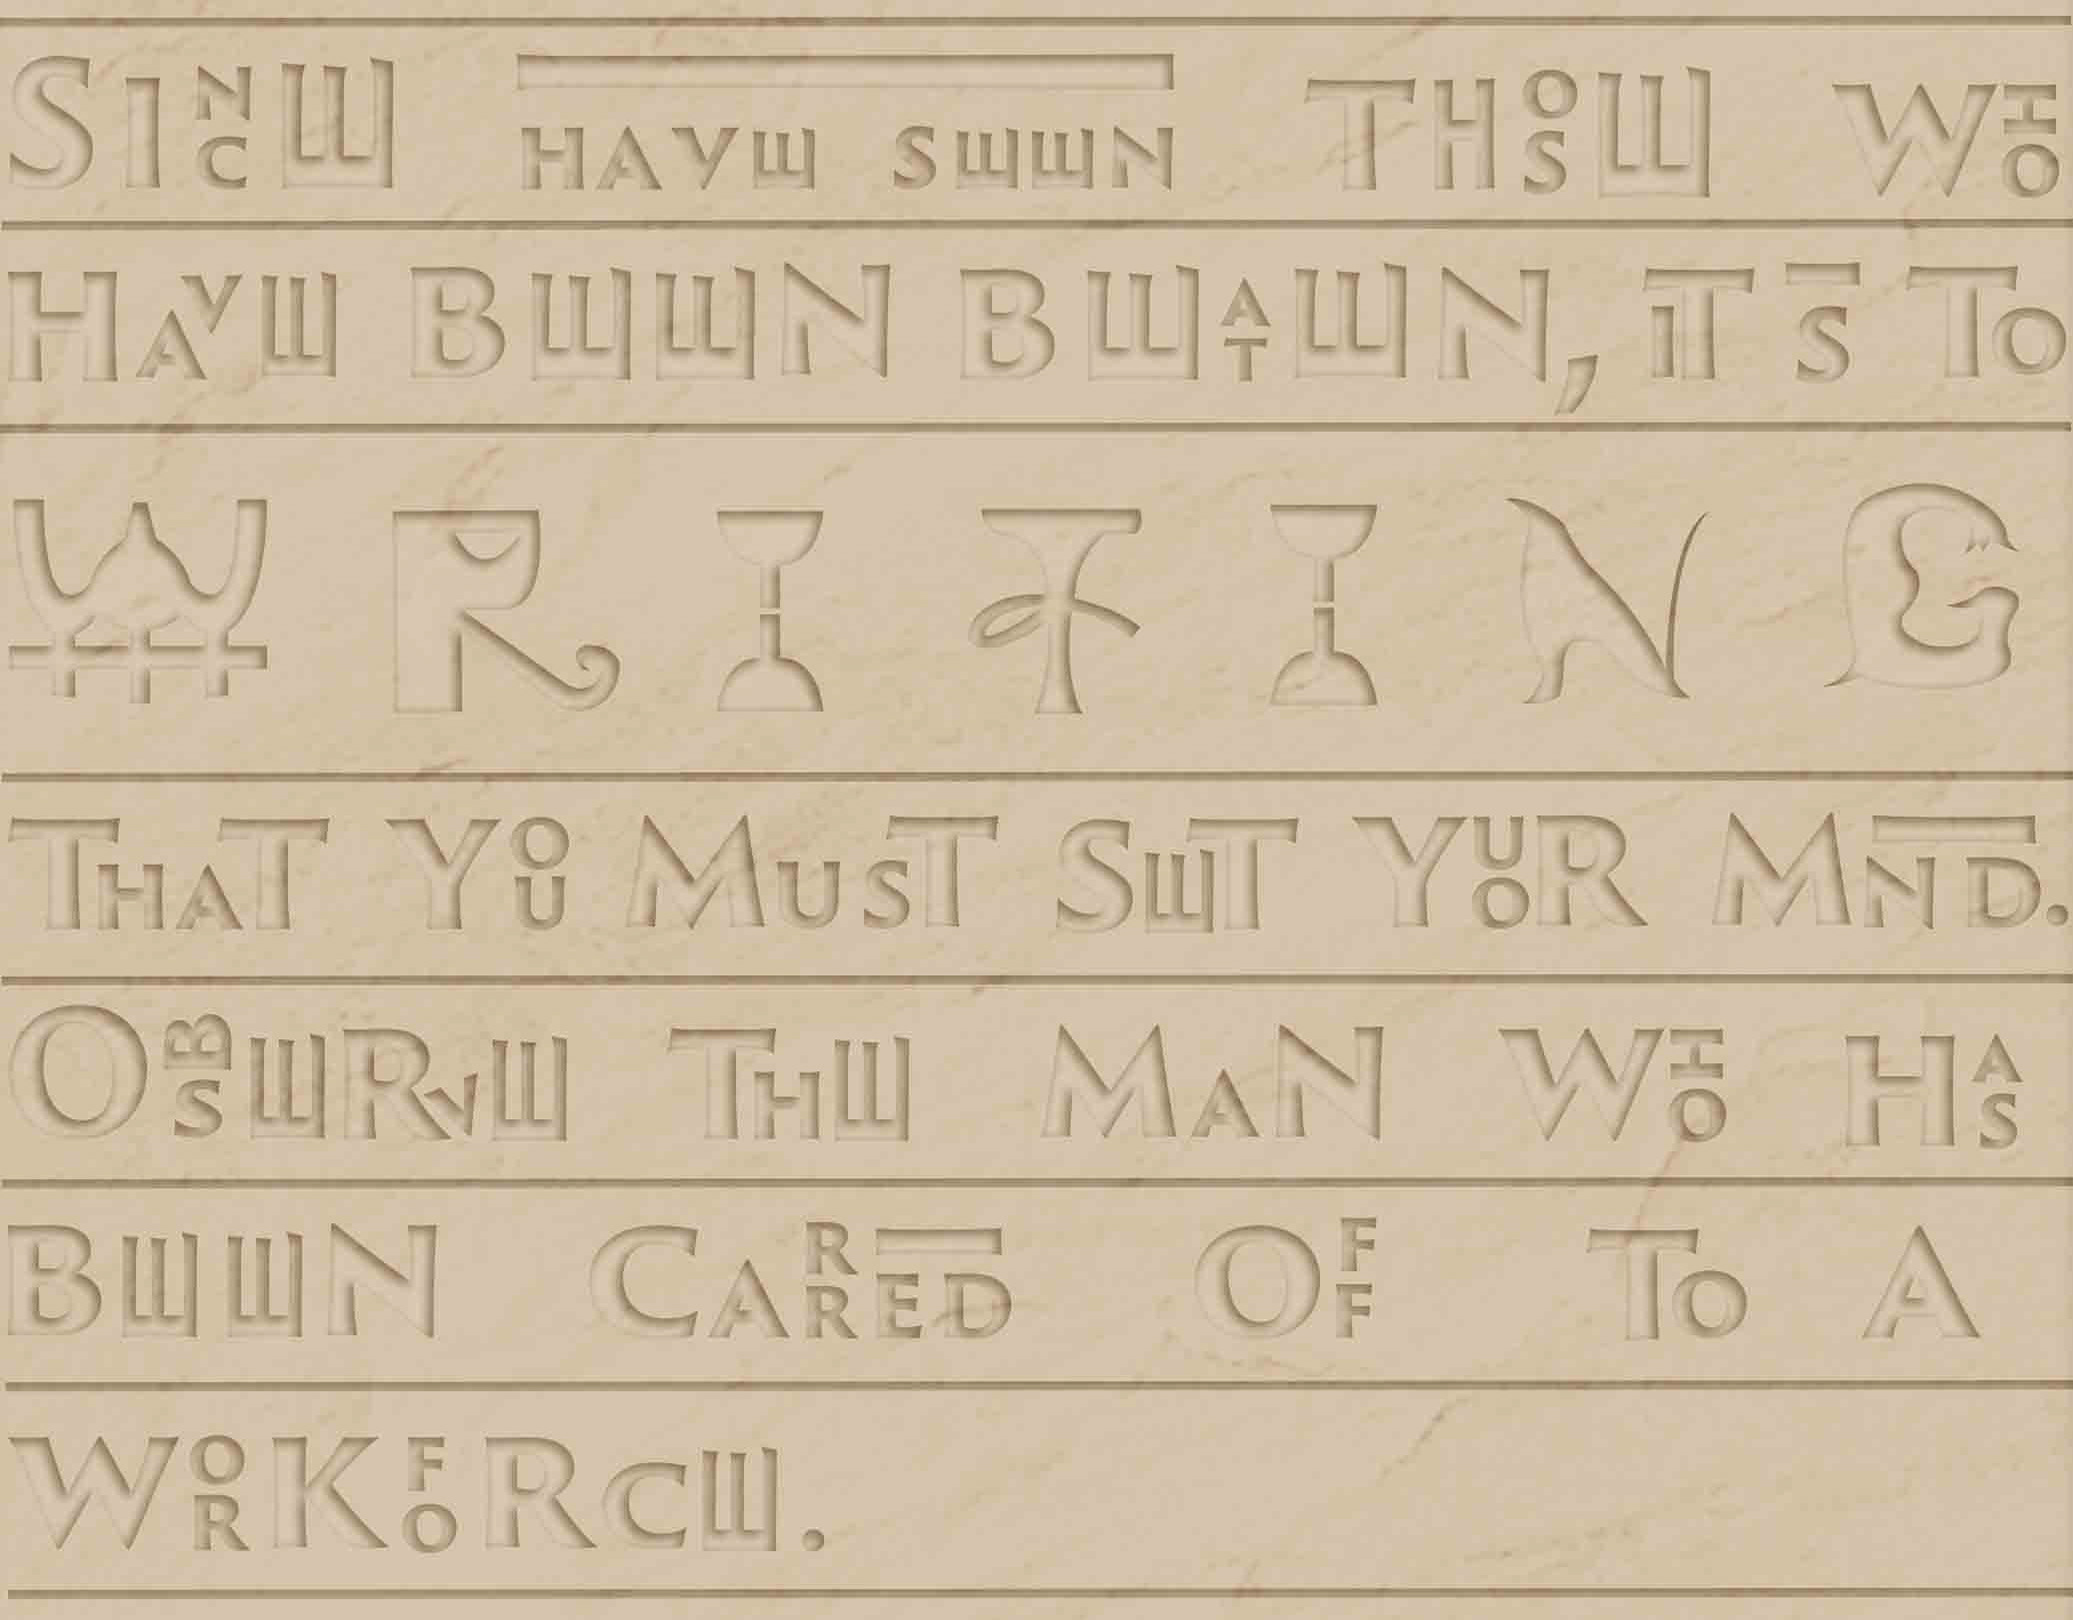 SINCE I HAVE SEEN THOSE WHO
HAVE BEEN BEATEN, IT IS TO
WRITING
THAT YOU MUST SET YOUR MIND.
OBSERVE THE MAN WHO HAS
BEEN CARRIED OFF TO A
WORKFORCE.